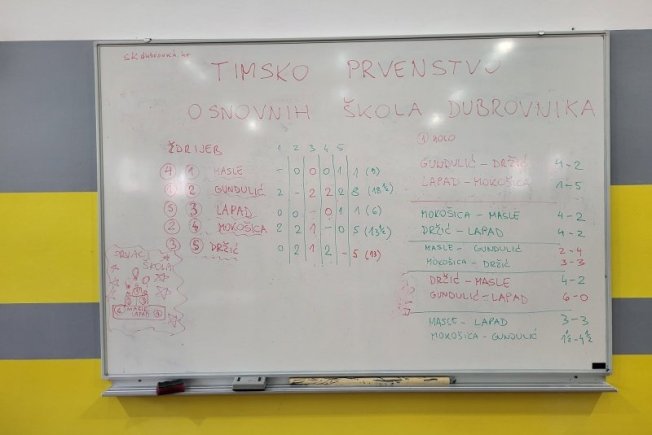 sk-dubrovnik.hr
TIMSKO PRVENSTVO
OSNOVNIH ŠKOLA DUBROVNIKA
ŽDRIJEB 1 2 3 4 5
4 1 MASLE - 0 0 0 1 1 (9)
1 2 GUNDULIĆ 2 - 2 2 2 8 (18½)
5 3 LAPAD 0 0 - 0 1 1 (6)
2 4 MOKOŠICA 2 2 1 - 0 5 (13½)
3 5 DRŽIĆ 0 2 1 2 - 5 (13)
PRVAC
ŠKOLA
MASLE
LAPAD
KOLO
GUNDULIĆ - DRŽIĆ 4-2
LAPAD - MOKOŠICA 1-5
MOKOŠICA - MASLE 4-2
DRŽIĆ - LAPAD 4-2
MASLE - GUNDULIĆ 2-4
MOKOŠICA - DRŽIĆ 3-3
DRŽIĆ - MASLE 4-2
GUNDULIĆ - LAPAD 6-0
MASLE - LAPAD 3-3
MOKOŠICA - GUNDULIĆ 1½-4½